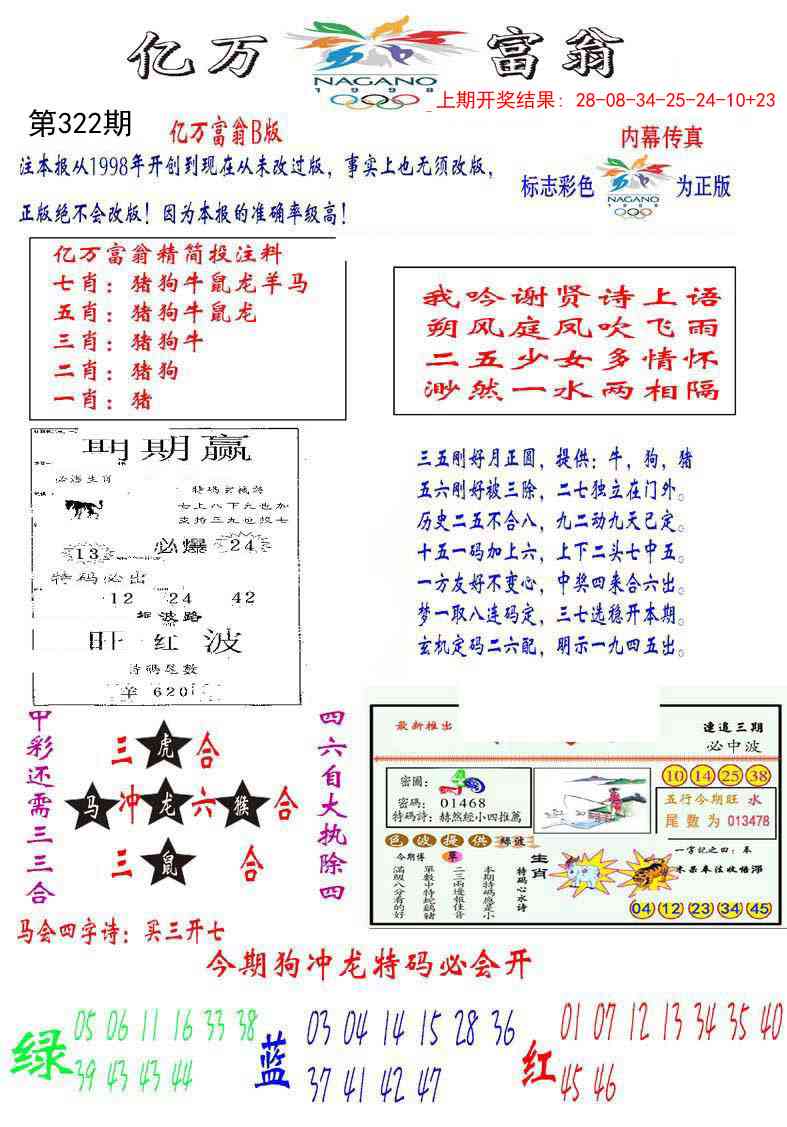 亿万
NAGANO
1998
富翁
上期开奖结果：28-08-34-25-24-10+23
第322期
亿万富翁B版
内幕传真
注本报从1998年开创到现在从未改过版，事实上也无须改版，
标志彩色
NAGANO
1998
为正版
正版绝不会改版！因为本报的准确率级高！
亿万富翁精简投注料
七肖：猪狗牛鼠龙羊马
五肖：猪狗牛鼠龙
三肖：猪狗牛
二肖：猪狗
一肖：猪
我吟谢贤诗上语
朔风庭凤吹飞雨
二五少女多情怀
渺然一水两相隔
期期赢
必遇生肖
七上八下九也加
支持三九也接七
13
必爆
24
特码必出
12 24 42
旺红波
诗码尾数
羊 620
三五刚好月正圆，提供：牛，狗，猪
五六刚好被三除，二七独立在门外。
历史二五不合八，九二动九天已定。
十五一码加上六，上下二头七中五。
一方友好不变心，中奖四来合六出。
梦一取八连码定，三七选稳开本期。
玄机定码二六配，明示一九四五出。
中彩还需三三合
三 虎 合
马 冲 龙 六 猴 合
三 鼠 合
四六自大执除四
马会四字诗：买三开七
最新推出
连追三期
必中波
密圖：
密碼：01468
特碼詩：赫然經小四推薦
10 14 25 38
五行今期旺 水
尾數为 013478
色波提供 綠波
今期搏 單
本期特碼應是小
二三兩邊報佳音
單數中特蛇鷄豬
滿級八分看的好
特碼心水诗
生肖
一字記之曰：奉
04 12 23 34 45
今期狗冲龙特码必会开
绿
05 06 11 16 33 38
39 43 43 44
蓝
03 04 14 15 28 36
37 41 42 47
红
01 07 12 13 34 35 40
45 46